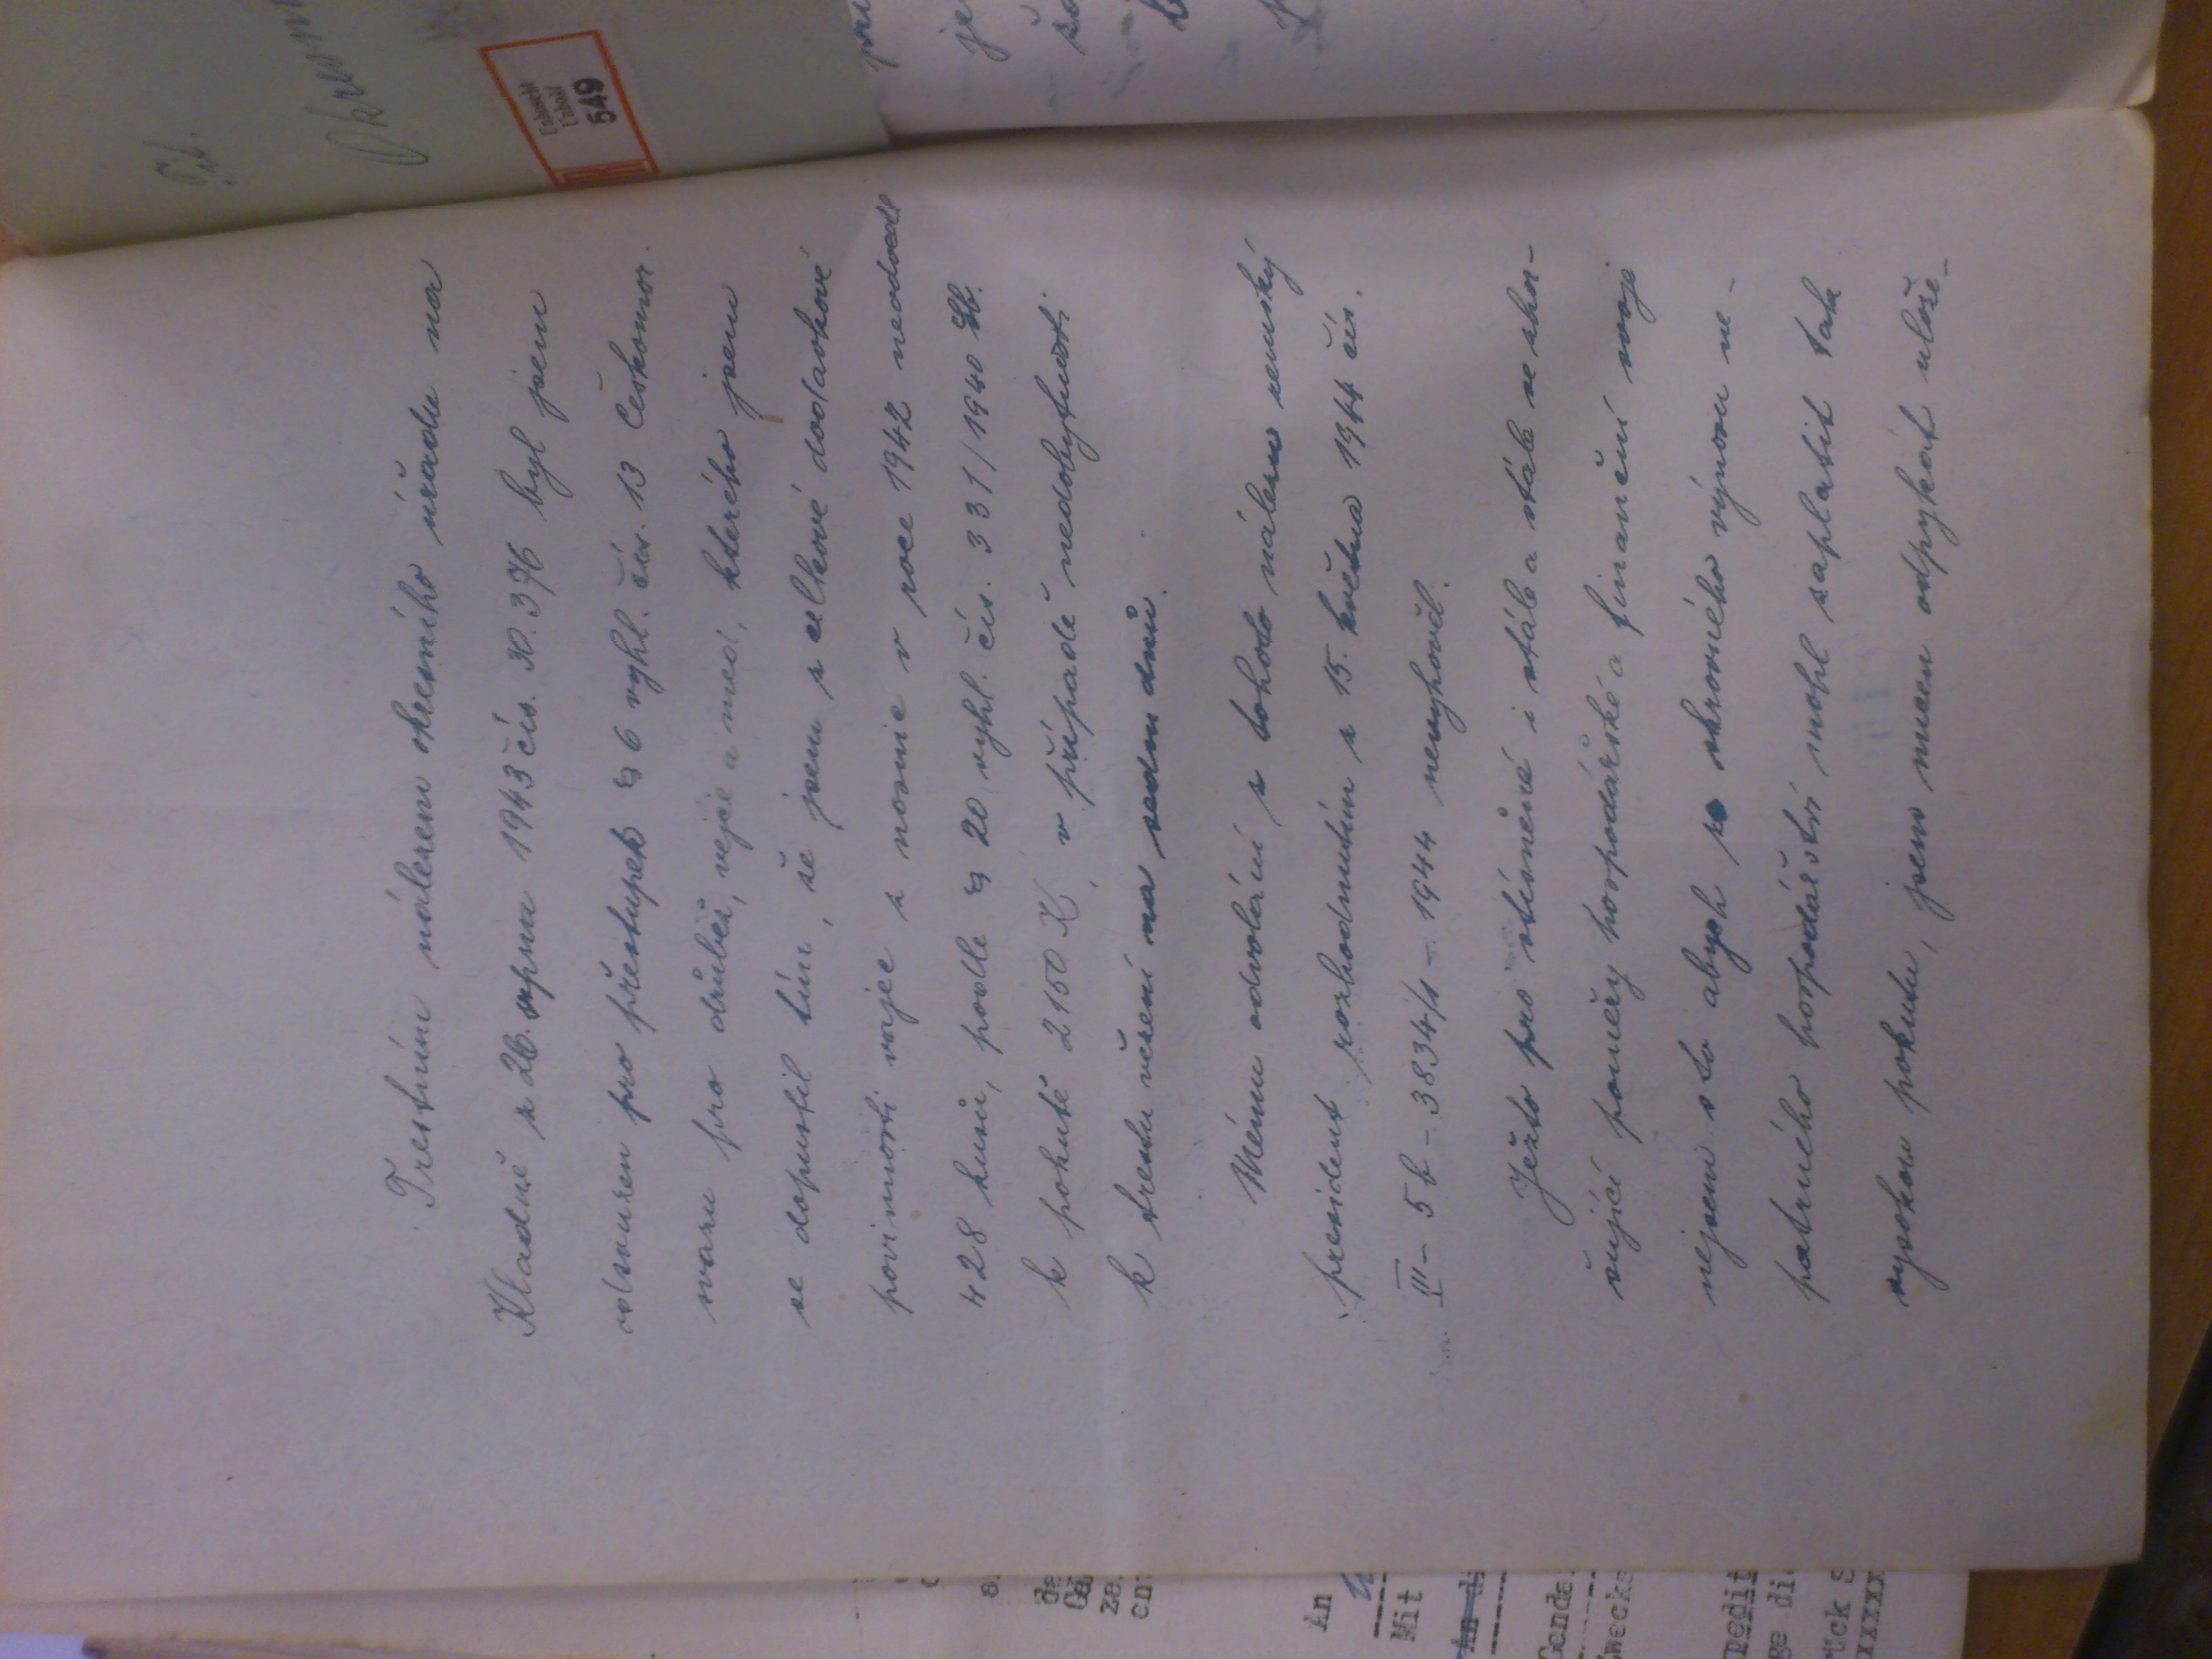 Trestním nálezem okresního úřadu na
Kladně z 26. srpna 1943 čís. 30.376 byl jsem
odsouzen pro přestupek § 6 vyhl. čís. 13 Českomor.
svazu pro drůbež, vejce a med, kterého jsem
se dopustil tím, že jsem z celkové dodavkové
povinnosti vajec z nosnic v roce 1942 neodvedl
428 kusů, podle § 20 vyhl. čís. 331/1940 Sb.
k pokutě 2150 K, v případě nedobytnosti
k trestu vězení na sedm dnů.
Mému odvolání z tohoto nálezu zemský
president rozhodnutím z 15. května 1944 čís.
III - 5 b - 3834/1 - 1944 nevyhověl.
Ježto pro stísněné i stále a stále se zhor-
šující poměry hospodářské a finanční svoje
nejsem s to abych ze skrovného výnosu ne-
patrného hospodářství mohl zaplatit tak
vysokou pokutu, jsem nucen odpykat ulože-
An
Mit
An di
Gend
Zwecks
pedit
ge di
rück S
xxxxx
Tit.
Okresn
Unhoscht
Unhošť
549
je